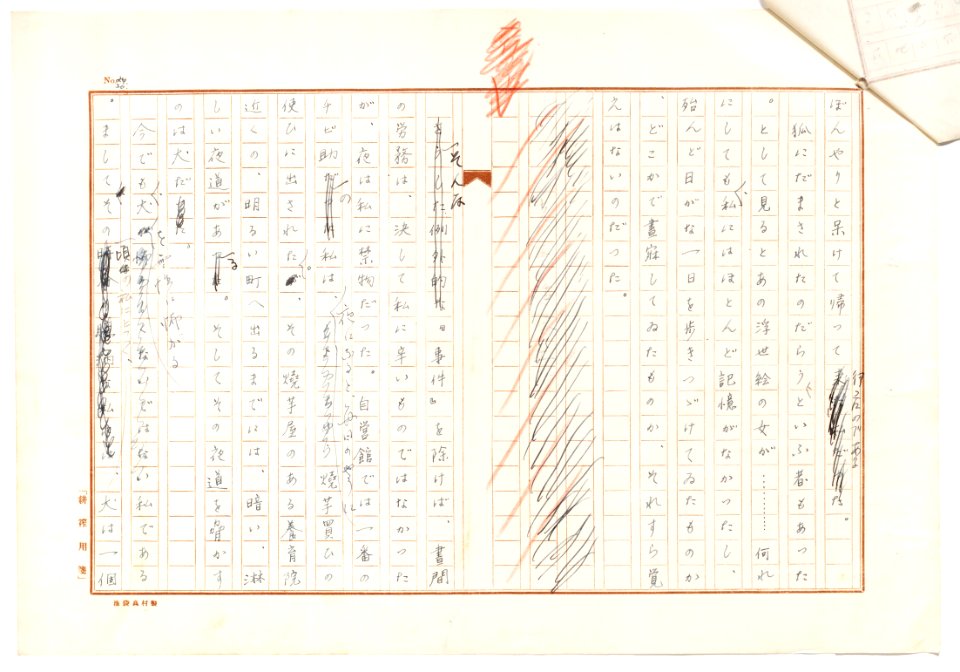 ぼんやりと呆けて帰って
狐にだまされたのだらうといふ者もあった
。として見るとあの浮世絵の女が…………何れ
にしても、私にはほとんど記憶がなかったし、
殆んど目がな一日を歩きつゞけてゐたものか
、どこかで晝寐してゐたものか、それすら覚
えはないのだった。
そんな
"事件"を除けば、晝間
の労務は、決して私に辛いものではなかった
が、夜は私に禁物だった。自営館では一番の
チビ助の私は、夜になると、毎日のやうに焼芋買ひの
使ひに出された。その焼芋屋のある養育院
近くの、明るい町へ出るまでには、暗い、淋
しい夜道がある。そしてその夜道を脅かす
のは犬だ
今でも犬を
怖がる
私である
。ましてその頃の私にとつて、犬は一個
No.
「耕稼用箋」